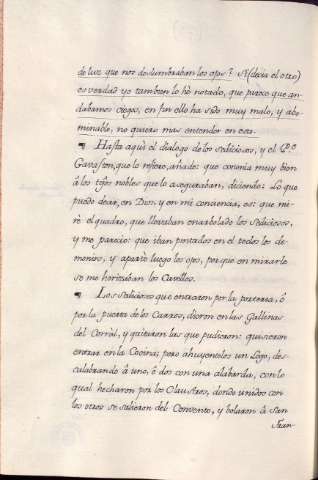 de luz que nos deslumbraban los ojos? Si (decia el otro)
es verdad yo tambien lo hè notado, que parece que an-
dabamos ciegos, en fin ello ha sido muy malo, y abo-
minable, no quiero mas entender en esto.
¶ Hasta aqui el dialogo de los sediciosos, y el
Gavaston, que lo refiere, añade: que convenia muy bien
à los nobles que lo aseguraban, diciendo: Lo que
puedo decir, en Dios, y en mi conciencia, es: que mi-
rè el quadro, que llevaban enarbolado los sediciosos,
y me pareciò: que iban pintados en el todos los de-
monios, y apartè luego los ojos, porque en mirarle
se me horrizaban los Cavellos.
¶ Los sediciosos que entraron por la porteria, ò
por la puerta de los Carros, dieron en las Gallinas
del Corral, y quitaron las que pudieron: quisieron
entrar en la Cocina; pero ahuyentolos un Lego, des-
calabrando à uno, ò dos con una alabarda, con lo
qual hecharon por los Claustros, donde unidos con
los otros se salieron del Convento, y bolaron à San
Fran-